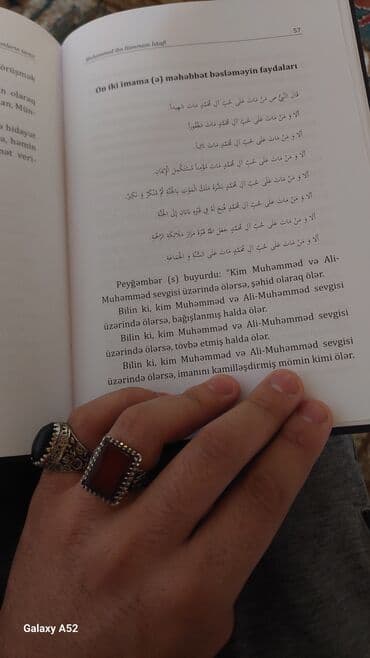 Muhəmməd ibn Həmmam İskafi
57
On iki imama (ə) məhəbbət bəsləməyin faydaları
قَالَ النَّبِيُّ ص مَنْ مَاتَ عَلَى حُبِّ آلِ مُحَمَّدٍ مَاتَ شَهِيداً.
أَلَا وَ مَنْ مَاتَ عَلَى حُبِّ آلِ مُحَمَّدٍ مَاتَ مَغْفُوراً
أَلَا وَ مَنْ مَاتَ عَلَى حُبِّ آلِ مُحَمَّدٍ مَاتَ تَائِباً
أَلَا وَ مَنْ مَاتَ عَلَى حُبِّ آلِ مُحَمَّدٍ مَاتَ مُؤْمِناً مُسْتَكْمِلَ الْإِيمَانِ
أَلَا وَ مَنْ مَاتَ عَلَى حُبِّ آلِ مُحَمَّدٍ بَشَّرَهُ مَلَكُ الْمَوْتِ بِالْجَنَّةِ ثُمَّ مُنْكَرٌ وَ نَكِيرٌ
أَلَا وَ مَنْ مَاتَ عَلَى حُبِّ آلِ مُحَمَّدٍ فُتِحَ لَهُ فِي قَبْرِهِ بَابَانِ إِلَى الْجَنَّةِ
أَلَا وَ مَنْ مَاتَ عَلَى حُبِّ آلِ مُحَمَّدٍ جَعَلَ اللَّهُ قَبْرَهُ مَزَارَ مَلَائِكَةِ الرَّحْمَةِ
أَلَا وَ مَنْ مَاتَ عَلَى حُبِّ آلِ مُحَمَّدٍ مَاتَ عَلَى السُّنَّةِ وَ الْجَمَاعَةِ
Peyğəmbər (s) buyurdu: “Kim Muhəmməd və Ali-
Muhəmməd sevgisi üzərində ölərsə, şəhid olaraq ölər.
Bilin ki, kim Muhəmməd və Ali-Muhəmməd sevgisi
üzərində ölərsə, bağışlanmış halda ölər.
Bilin ki, kim Muhəmməd və Ali-Muhəmməd sevgisi
üzərində ölərsə, tövbə etmiş halda ölər.
Bilin ki, kim Muhəmməd və Ali-Muhəmməd sevgisi
üzərində ölərsə, imanını kamilləşdirmiş mömin kimi ölər.
olaraq
hidayət
həmin
Galaxy A52